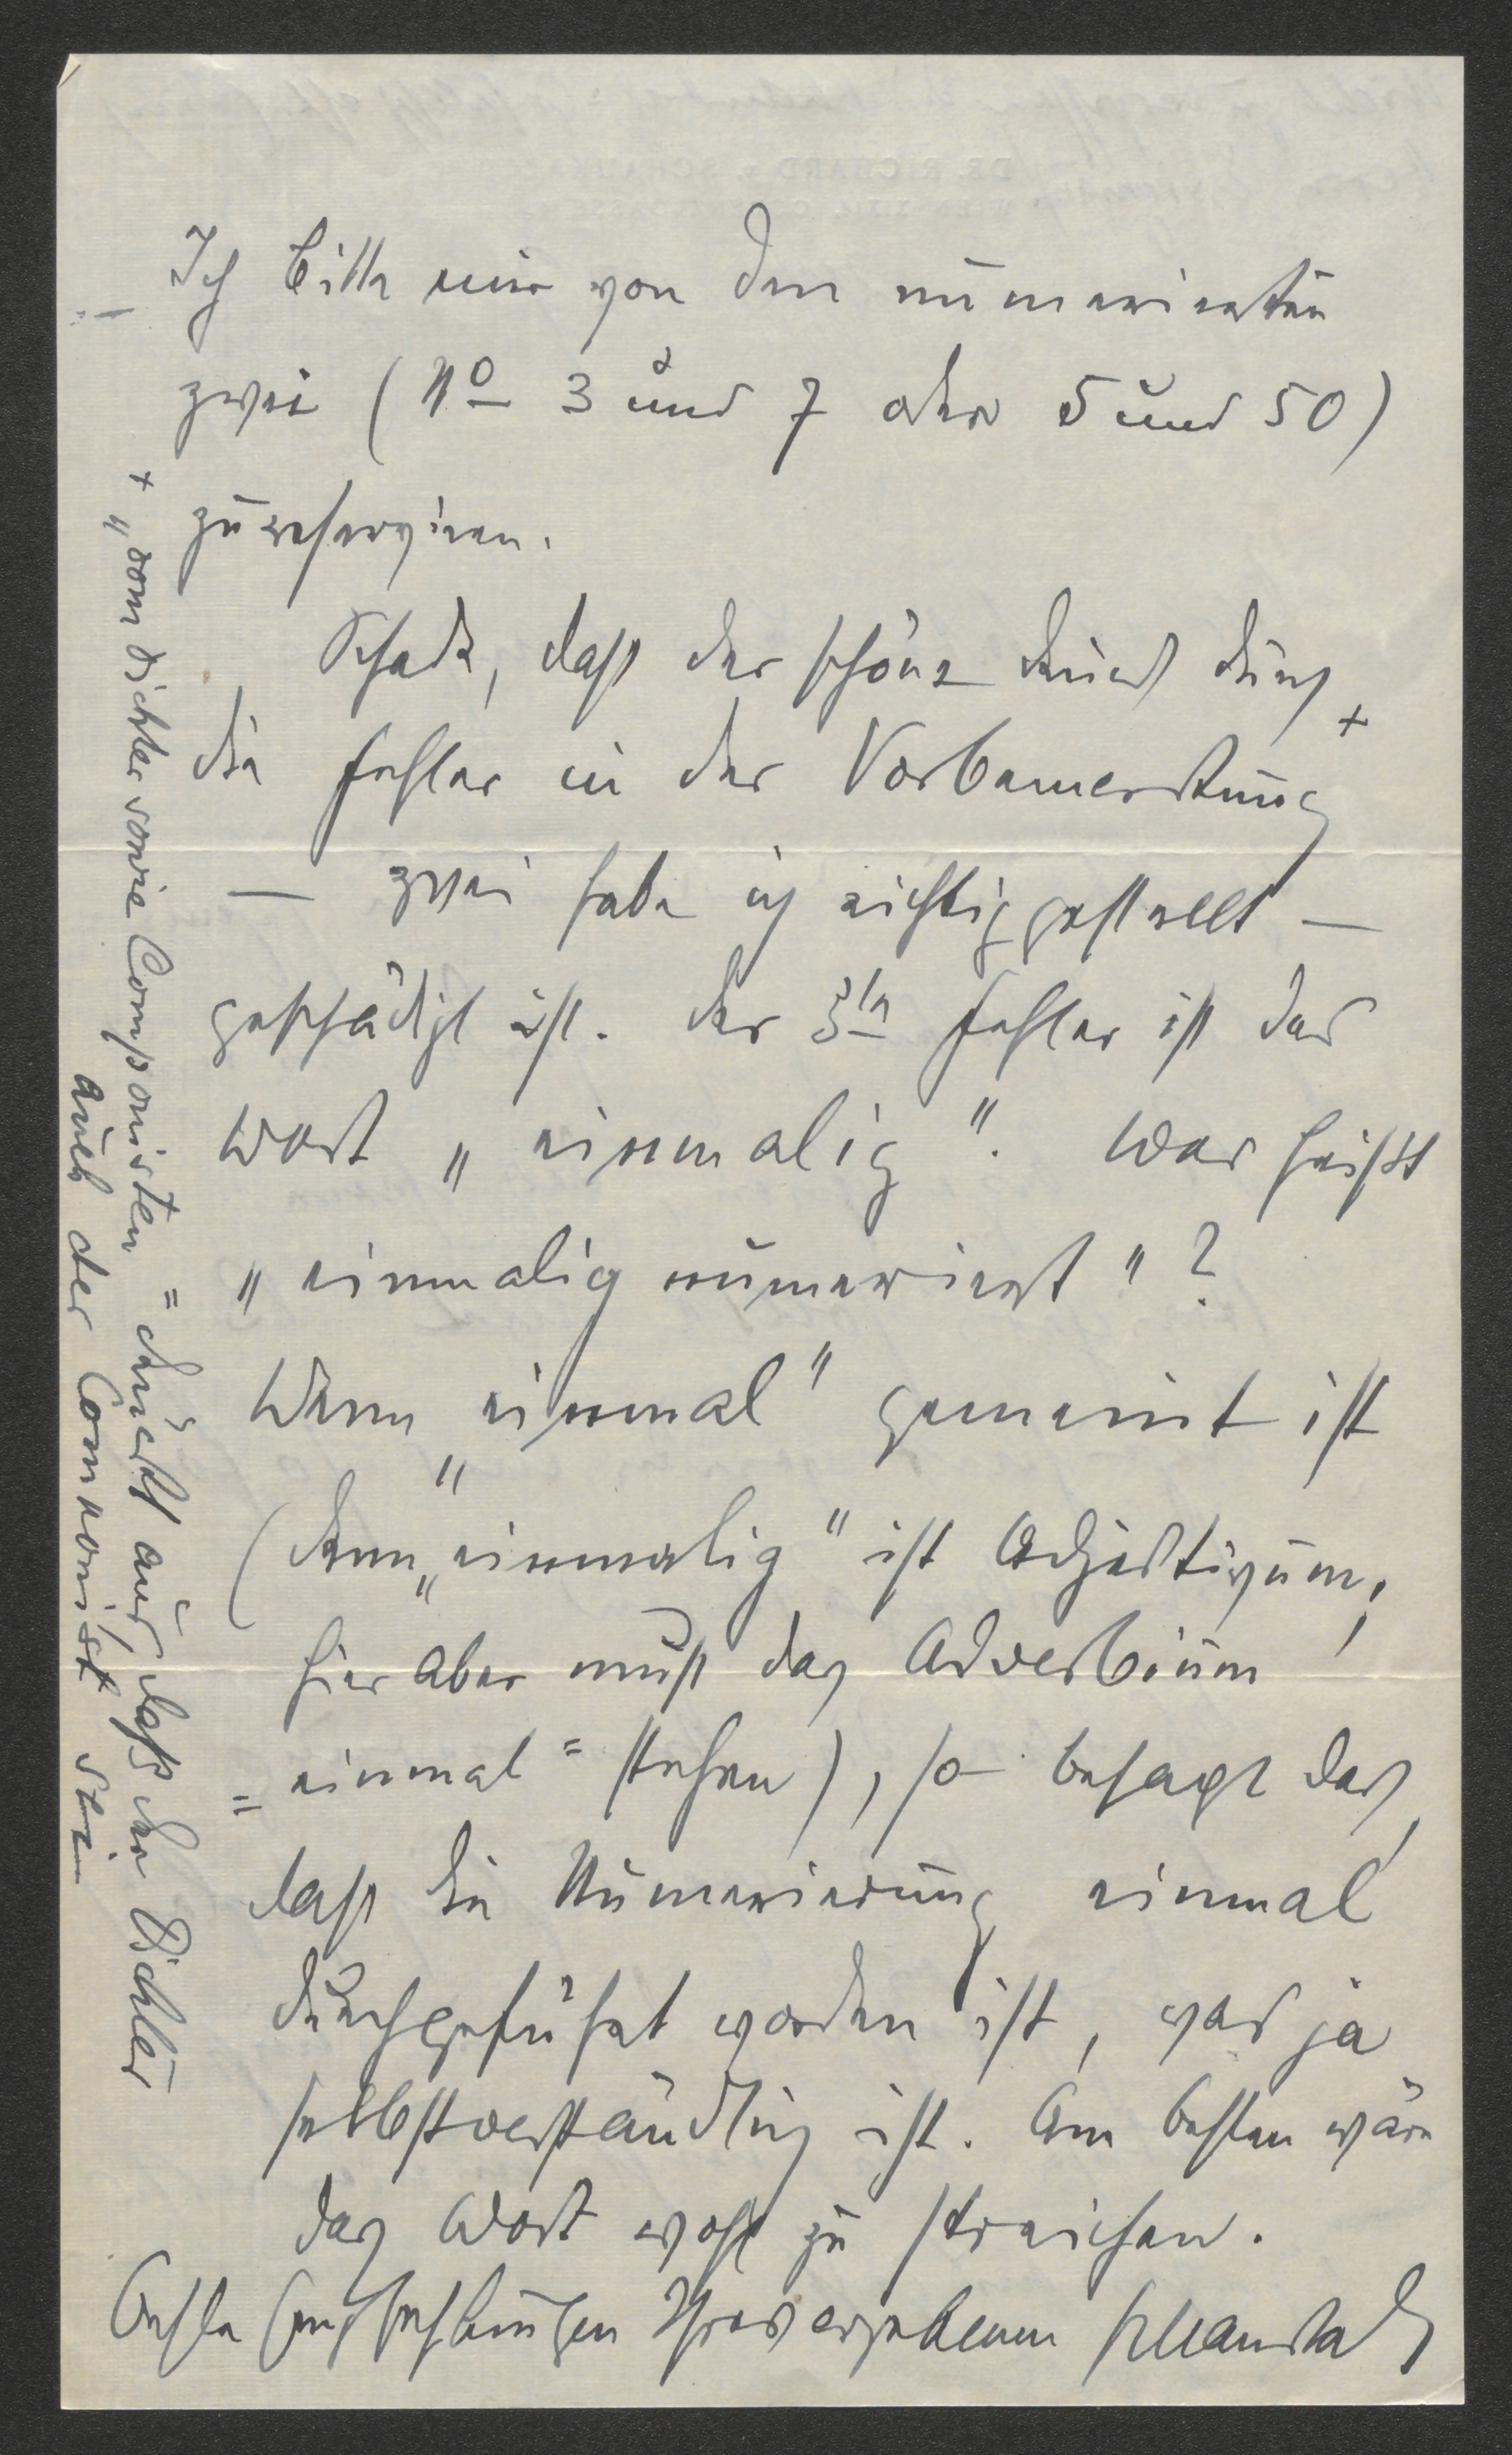 Ich bitte mir von den numerierten
zwei (No 3 und 7 oder 5 und 50)
zu reserviren.
Schade, daß der schöne Druck durch
die Fehler in der Vorbemerkung +
— zwei habe ich richtiggestellt —
geschädigt ist. Der 3te Fehler ist das
Wort „einmalig“. Was heißt
„einmalig numeriert“?
Wenn „einmal“ gemeint ist
(denn „einmalig“ ist Adjektivum,
hier aber muß das Adverbium
„einmal“ stehen), so besagt das,
daß die Numerierung einmal
durchgeführt worden ist, was ja
selbstverständlich ist. Am besten wäre
das Wort wohl zu streichen.
Beste Empfehlungen Ihres ergebenen Schaukal
+ „vom Dichter sowie Componisten“ drückt aus, daß der Dichter
auch der Componist sei